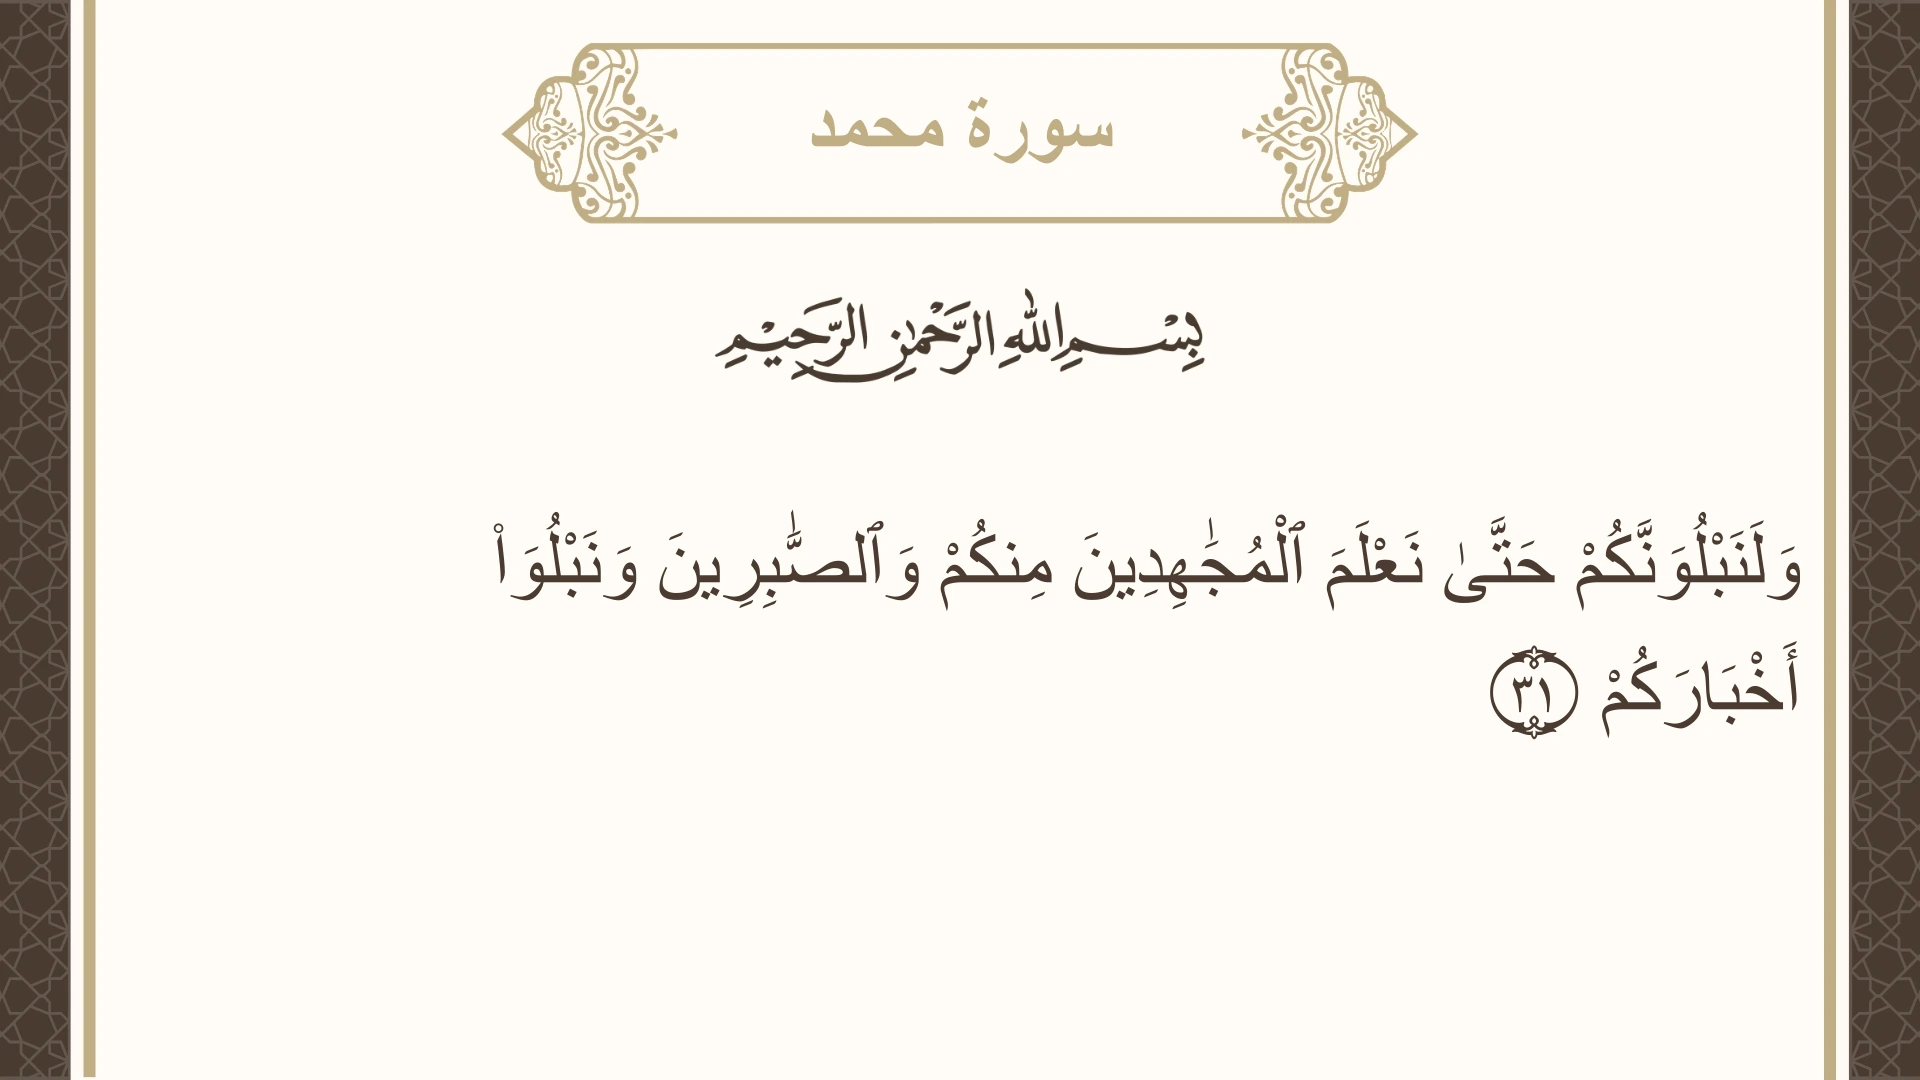 سورة محمد
بِسْمِ اللَّهِ الرَّحْمَٰنِ الرَّحِيمِ
وَلَنَبْلُوَنَّكُمْ حَتَّىٰ نَعْلَمَ ٱلْمُجَٰهِدِينَ مِنكُمْ وَٱلصَّٰبِرِينَ وَنَبْلُوَا۟
أَخْبَارَكُمْ ٣١